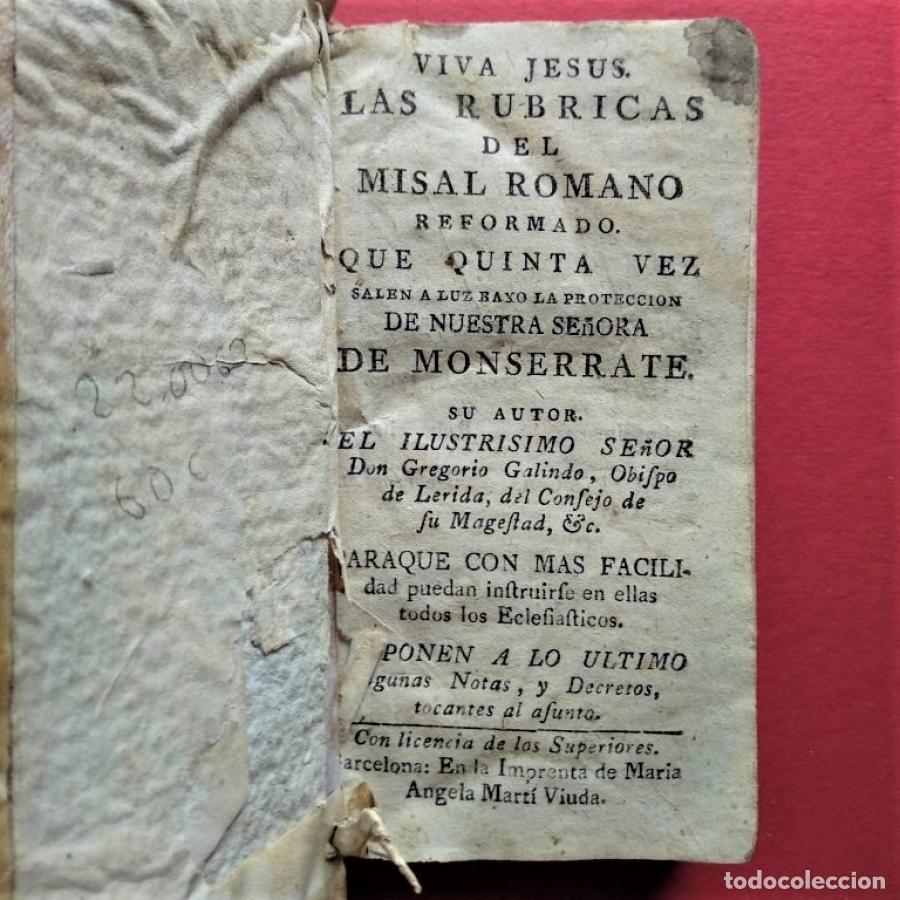 VIVA JESUS.
LAS RUBRICAS
DEL
MISAL ROMANO
REFORMADO.
QUE QUINTA VEZ
SALEN A LUZ BAXO LA PROTECCION
DE NUESTRA SEñORA
DE MONSERRATE.
SU AUTOR.
EL ILUSTRISIMO SEñOR
Don Gregorio Galindo, Obiſpo
de Lerida, del Conſejo de
ſu Mageſtad, &c.
ARAQUE CON MAS FACILI-
dad puedan inſtruirſe en ellas
todos los Ecleſiaſticos.
PONEN A LO ULTIMO
gunas Notas, y Decretos,
tocantes al aſunto.
Con licencia de los Superiores.
arcelona: En la Imprenta de Maria
Angela Martí Viuda.
22.000
60€
todocoleccion